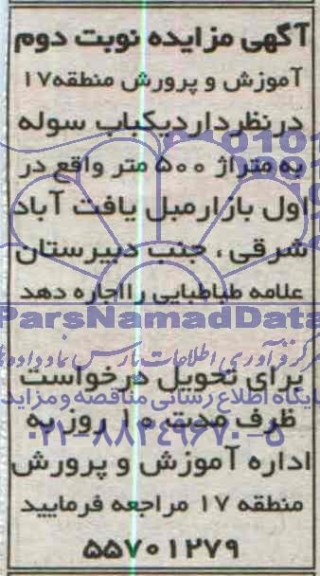 آگهی مزایده نوبت دوم
آموزش و پرورش منطقه ۱۷
درنظر دارد یکباب سوله
به متراژ ۵۰۰ متر واقع در
اول بازار مبل یافت آباد
شرقی ، جنب دبیرستان
علامه طباطبایی را اجاره دهد
ParsNamadData
مرکز فرآوری اطلاعات پارس نماد داده ها
برای تحویل درخواست
پایگاه اطلاع رسانی مناقصه و مزایده
ظرف مدت ۱۰ روز به
۰۲۱-۸۸۳۴۹۶۷۰-۵
اداره آموزش و پرورش
منطقه ۱۷ مراجعه فرمایید
۵۵۷۰۱۲۷۹